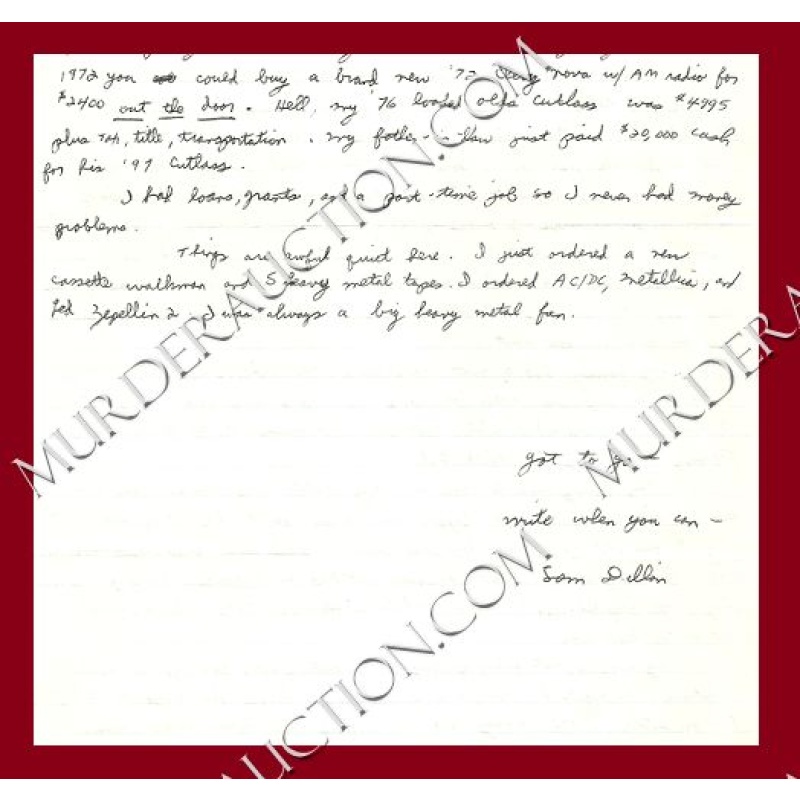 1972 you could buy a brand new '72 Chevy Nova w/ AM radio for
$2400 out the door. Hell, my '76 loaded olds Cutlass was $4995
plus tax, title, transportation. My father-in-law just paid $20,000 cash
for his '97 Cutlass.
I had loans, grants, and a part-time job so I never had money
problems.
Things are awful quiet here. I just ordered a new
cassette walkman and 5 heavy metal tapes. I ordered AC/DC, Metallica, and
Led Zepellin 2. I was always a big heavy metal fan.
got to go —
write when you can —
Sam Dillon
MURDERAUCTION.COM
MURDERAUCTION.COM